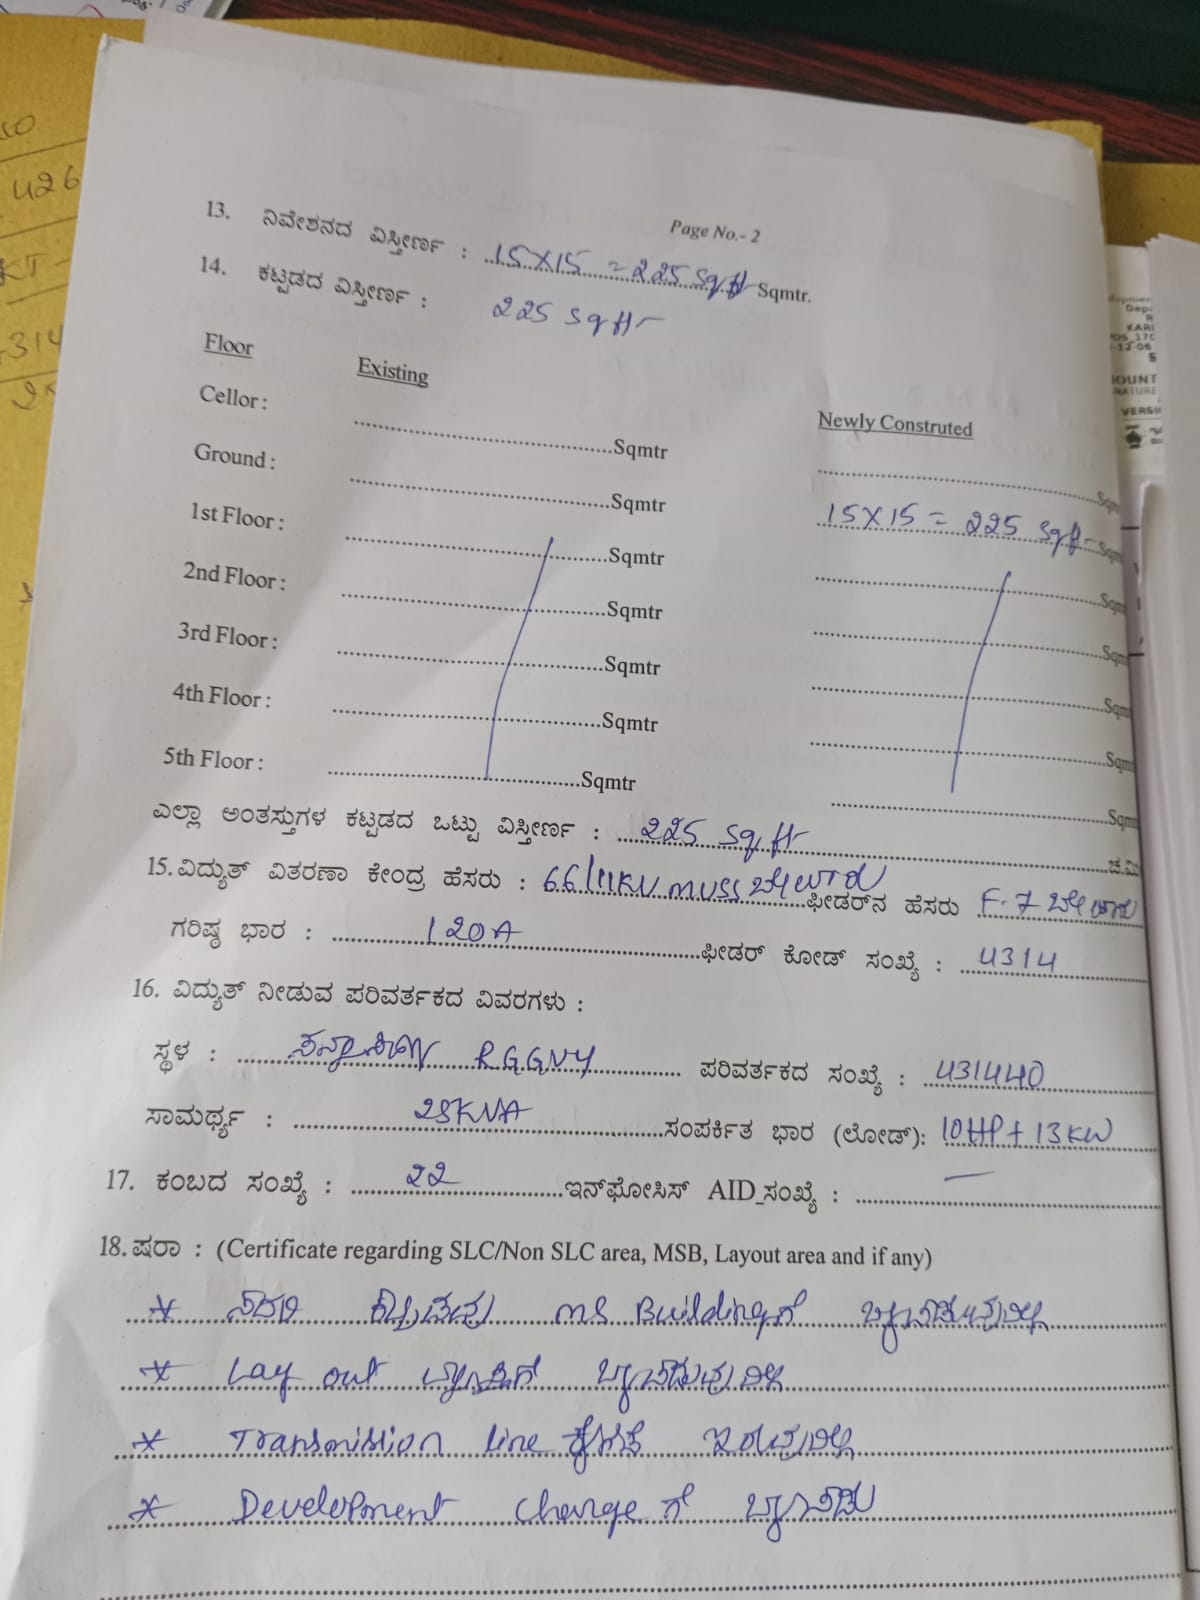 Page No.- 2
13. ನಿವೇಶನದ ವಿಸ್ತೀರ್ಣ : 15X15 = 225 Sqft Sqmtr.
14. ಕಟ್ಟಡದ ವಿಸ್ತೀರ್ಣ : 225 Sqft
Floor Existing Newly Construted
Cellor : Sqmtr
Ground : Sqmtr 15X15 = 225 Sqft
1st Floor : Sqmtr
2nd Floor : Sqmtr
3rd Floor : Sqmtr
4th Floor : Sqmtr
5th Floor : Sqmtr
ಎಲ್ಲಾ ಅಂತಸ್ತುಗಳ ಕಟ್ಟಡದ ಒಟ್ಟು ವಿಸ್ತೀರ್ಣ : 225 Sqft ಚ.ಮಿ
15. ವಿದ್ಯುತ್ ವಿತರಣಾ ಕೇಂದ್ರ ಹೆಸರು : 66/11KV MUSS ಫೀಡರ್‌ನ ಹೆಸರು F-7
ಗರಿಷ್ಠ ಭಾರ : 120A ಫೀಡರ್ ಕೋಡ್ ಸಂಖ್ಯೆ : 4314
16. ವಿದ್ಯುತ್ ನೀಡುವ ಪರಿವರ್ತಕದ ವಿವರಗಳು :
ಸ್ಥಳ : RGGVY ಪರಿವರ್ತಕದ ಸಂಖ್ಯೆ : 431440
ಸಾಮರ್ಥ್ಯ : 25KVA ಸಂಪರ್ಕಿತ ಭಾರ (ಲೋಡ್): 10HP + 13KW
17. ಕಂಬದ ಸಂಖ್ಯೆ : 22 ಇನ್‌ಫೋಸಿಸ್ AID_ಸಂಖ್ಯೆ : —
18. ಷರಾ : (Certificate regarding SLC/Non SLC area, MSB, Layout area and if any)
* ಸದರಿ ಕಟ್ಟಡವು MS Buildingಗೆ
* Lay out
* Transmission line ಕೆಳಗಡೆ ಇರುವುದಿಲ್ಲ
* Development Charge ಗೆ